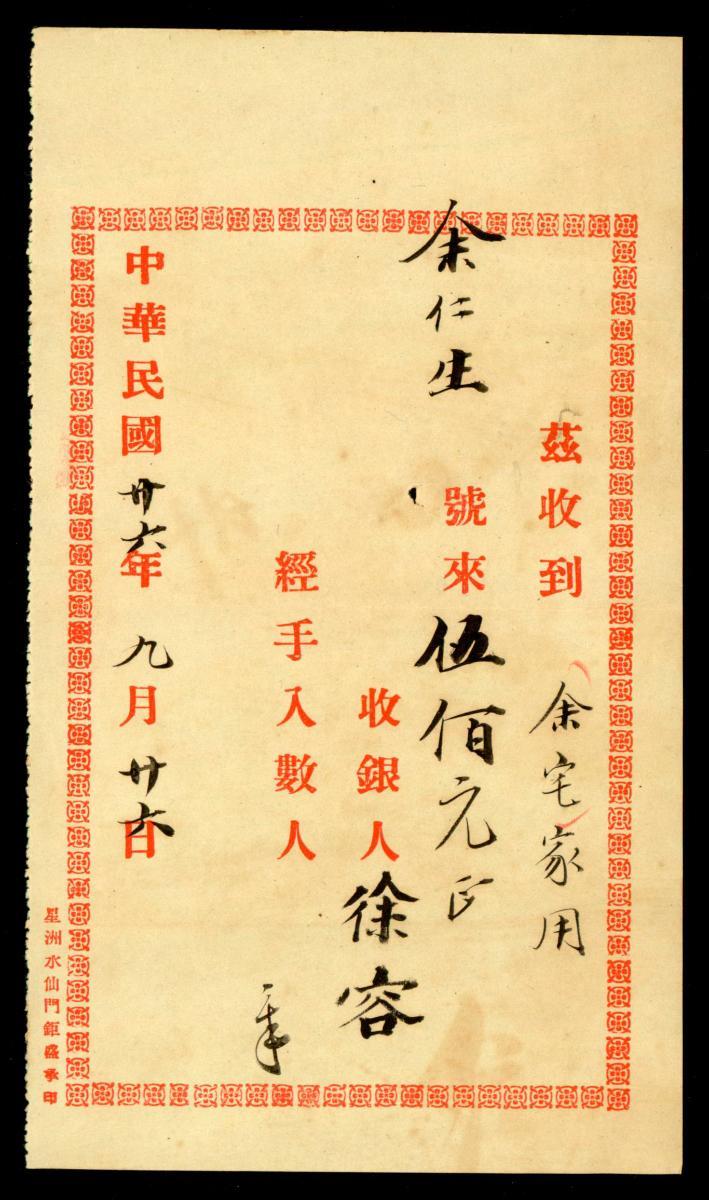 茲收到余宅家用
余仁生號來伍佰元正
收銀人徐容
經手入數人
中華民國廿六年九月廿六日
星洲水仙門鉅盛承印